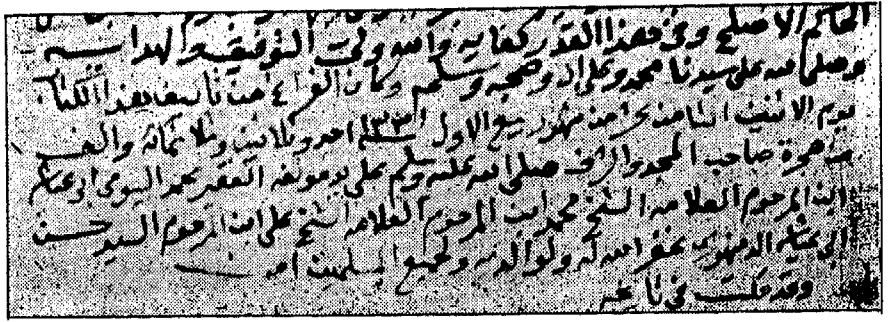 الحاكم الاصلح وفى هذا القدر كفاية والله ولى التوفيق والهداية
وصلى الله على سيدنا محمد وعلى ال وصحبه وسلم وكان الفراغ من تأليف هذا الكتاب
يوم الاثنين الثامن من شهور ربيع الاول ١٣٣١ احد وثلاثين وثلاثمائة والف
من هجرة صاحب المجد والشرف صلى الله عليه وسلم على يد مؤلفه الفقير محمد البيومى ابو
ابن المرحوم العلامه الشيخ محمد ابن المرحوم العلامه الشيخ على ابن المرحوم السيد حسن
ابى الدمنهورى غفر الله له ولوالديه ولجميع المسلمين امين
وقد قلت فى تاريخه